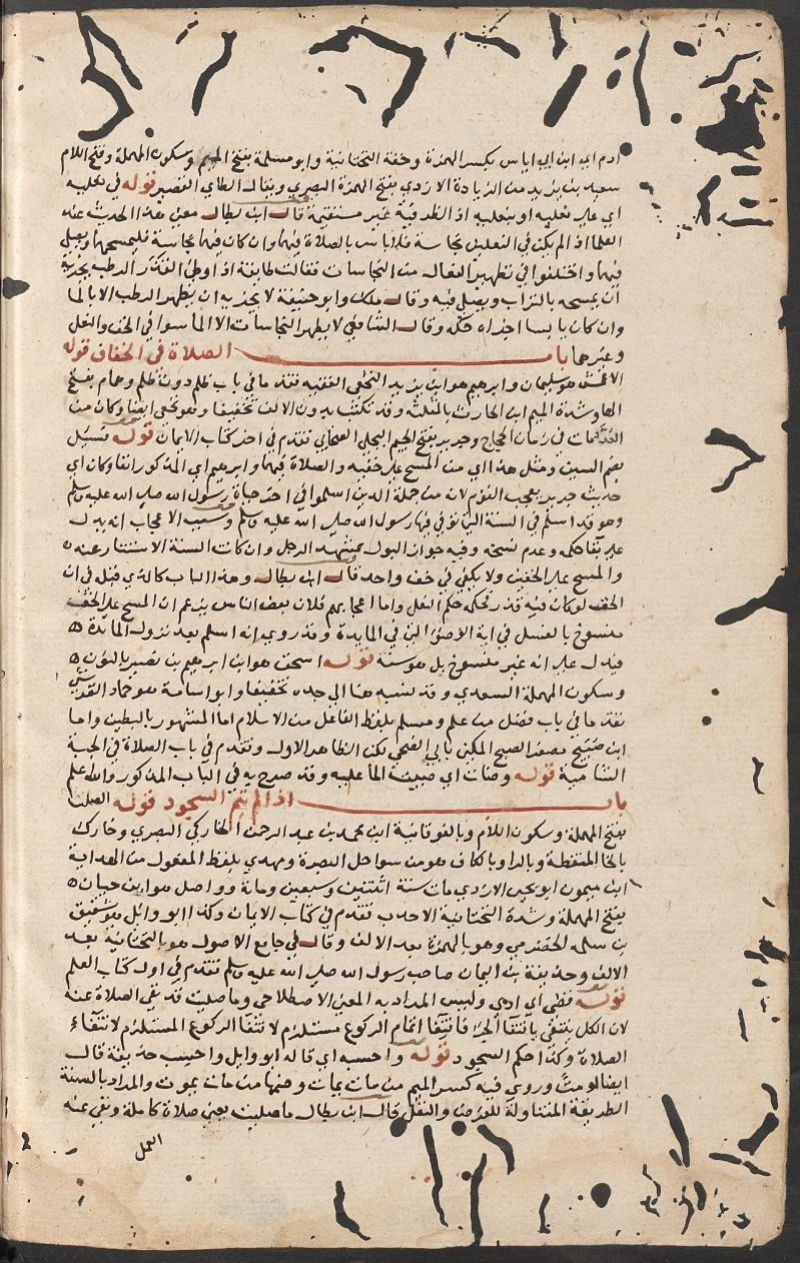 ادم اي ابن ابي اياس بكسر الهمزة وخفة التحتانية وابو مسلمة بفتح الميم وسكون المهملة وفتح اللام
سعيد بن يزيد من الزيادة الازدي بفتح الهمزة البصري ويقال الطاي القصير قوله في نعليه
اي علي نعليه او بنعليه اذ الظرفية غير مستقيمة قال ابن بطال معني هذا الحديث عند
العلما اذا لم يكن في النعلين نجاسة فلا باس بالصلاة فيهما وان كان فيهما نجاسة فليمسحهما ويصلي
فيهما واختلفوا في تطهير النعال من النجاسات فقالت طايفة اذا وطئ القذر الرطب يجزيه
ان يمسحه بالتراب ويصلي فيه وقال ملك وابو حنيفة لا يجزيه ان يطهر الرطب الا بالما
وان كان يابسا اجزاه حكه وقال الشافعي لا يطهر النجاسات الا الما سوا في الخف والنعل
وغيرهما باب الصلاة في الخفاف قوله
الاعمش هو سليمان وابرهيم هو ابن يزيد النخعي الفقيه تقدما في باب ظلم دون ظلم وهمام بفتح
الها وشدة الميم ابن الحارث بالمثلثة وقد تكتب بدون الالف تخفيفا وهو نخعي ايضا وكان من
العباد مات في زمان الحجاج وجرير بفتح الجيم البجلي الصحابي تقدم في اخر كتاب الايمان قوله فسئل
بضم السين ومثل هذا اي من المسح علي خفيه والصلاة فيهما وابرهيم اي المذكور انفا وكان اي
حديث جرير يعجب القوم لانه من جملة الذين اسلموا في اخر حياة رسول الله صلي الله عليه وسلم
وهو قد اسلم في السنة التي توفي فيها رسول الله صلي الله عليه وسلم وسبب الاعجاب انه يدل
علي بقا حكمه وعدم نسخه وفيه جواز البول بمشهد الرجل وان كانت السنة الاستتار عنه
والمسح علي الخفين ولا يكفي في خف واحد قال ابن بطال وهذا الباب كالذي قبله في ان
الخف لو كان فيه قذر فحكمه حكم النعل واما اعجابهم فلان بعض الناس يزعم ان المسح علي الخف
منسوخ بالغسل في اية الوضوء التي في المايدة وقد روي انه اسلم بعد نزول المائدة
فيدل علي انه غير منسوخ بل هو سنة قوله اسحق هو ابن ابرهيم بن نصير بالنون
وسكون المهملة السعدي وقد نسبه هنا الي جده تخفيفا وابو اسامة هو حماد القرشي
تقدما في باب فضل من علم ومسلم بلفظ الفاعل من الاسلام اما المشهور بالبطين واما
ابن صبيح مصغر الصبح المكني بابي الضحي لكن الظاهر الاول وتقدم في باب الصلاة في الجبة
الشامية قوله وضات اي صببت الما عليه وقد صرح به في الباب المذكور والله اعلم
باب اذا لم يتم السجود قوله الصلت
بفتح المهملة وسكون اللام وبالفوقانية ابن محمد بن عبد الرحمن الخاركي البصري وخارك
بالخا المنقطة وبالرا وبالكاف هو من سواحل البصرة ومهدي بلفظ المفعول من الهداية
ابن ميمون ابو يحيي الازدي مات سنة اثنتين وسبعين ومائة وواصل هو ابن حيان
بفتح المهملة وشدة التحتانية الاحدب تقدم في كتاب الايمان وكذا ابو وائل هو شقيق
بن سلمه الحضرمي وهو بالهمزة بعد الالف وقال في جامع الاصول هو بالتحتانية بعد
الالف وحذيفة بن اليمان صاحب رسول الله صلي الله عليه وسلم تقدم في اول كتاب العلم
قوله قضي اي ادي وليس المراد به المعني الاصطلاحي وما صليت قد نفي الصلاة عنه
لان الكل ينتفي بانتفا الجزا فانتفا اتمام الركوع مستلزم لانتفا الركوع المستلزم لانتفاء
الصلاة وكذا حكم السجود قوله واحسبه اي قاله ابو وايل واحسب حذيفة قال
ايضا لو مت وروي فيه كسر الميم من مات يمات وضمها من مات يموت والمراد بالسنة
الطريقة المتناولة للفرض والنفل وقال ابن بطال ما صليت يعني صلاة كاملة ونفي عنه
العمل